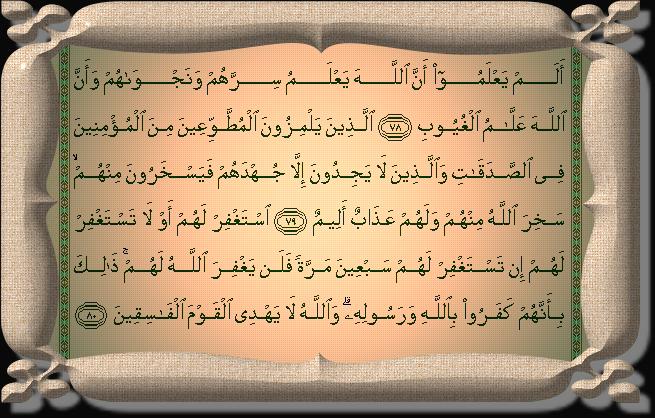 أَلَمْ يَعْلَمُوٓا۟ أَنَّ ٱللَّهَ يَعْلَمُ سِرَّهُمْ وَنَجْوَىٰهُمْ وَأَنَّ
ٱللَّهَ عَلَّٰمُ ٱلْغُيُوبِ ﴿٧٨﴾ ٱلَّذِينَ يَلْمِزُونَ ٱلْمُطَّوِّعِينَ مِنَ ٱلْمُؤْمِنِينَ
فِى ٱلصَّدَقَٰتِ وَٱلَّذِينَ لَا يَجِدُونَ إِلَّا جُهْدَهُمْ فَيَسْخَرُونَ مِنْهُمْ ۙ
سَخِرَ ٱللَّهُ مِنْهُمْ وَلَهُمْ عَذَابٌ أَلِيمٌ ﴿٧٩﴾ ٱسْتَغْفِرْ لَهُمْ أَوْ لَا تَسْتَغْفِرْ
لَهُمْ إِن تَسْتَغْفِرْ لَهُمْ سَبْعِينَ مَرَّةً فَلَن يَغْفِرَ ٱللَّهُ لَهُمْ ۚ ذَٰلِكَ
بِأَنَّهُمْ كَفَرُوا۟ بِٱللَّهِ وَرَسُولِهِۦ ۗ وَٱللَّهُ لَا يَهْدِى ٱلْقَوْمَ ٱلْفَٰسِقِينَ ﴿٨٠﴾